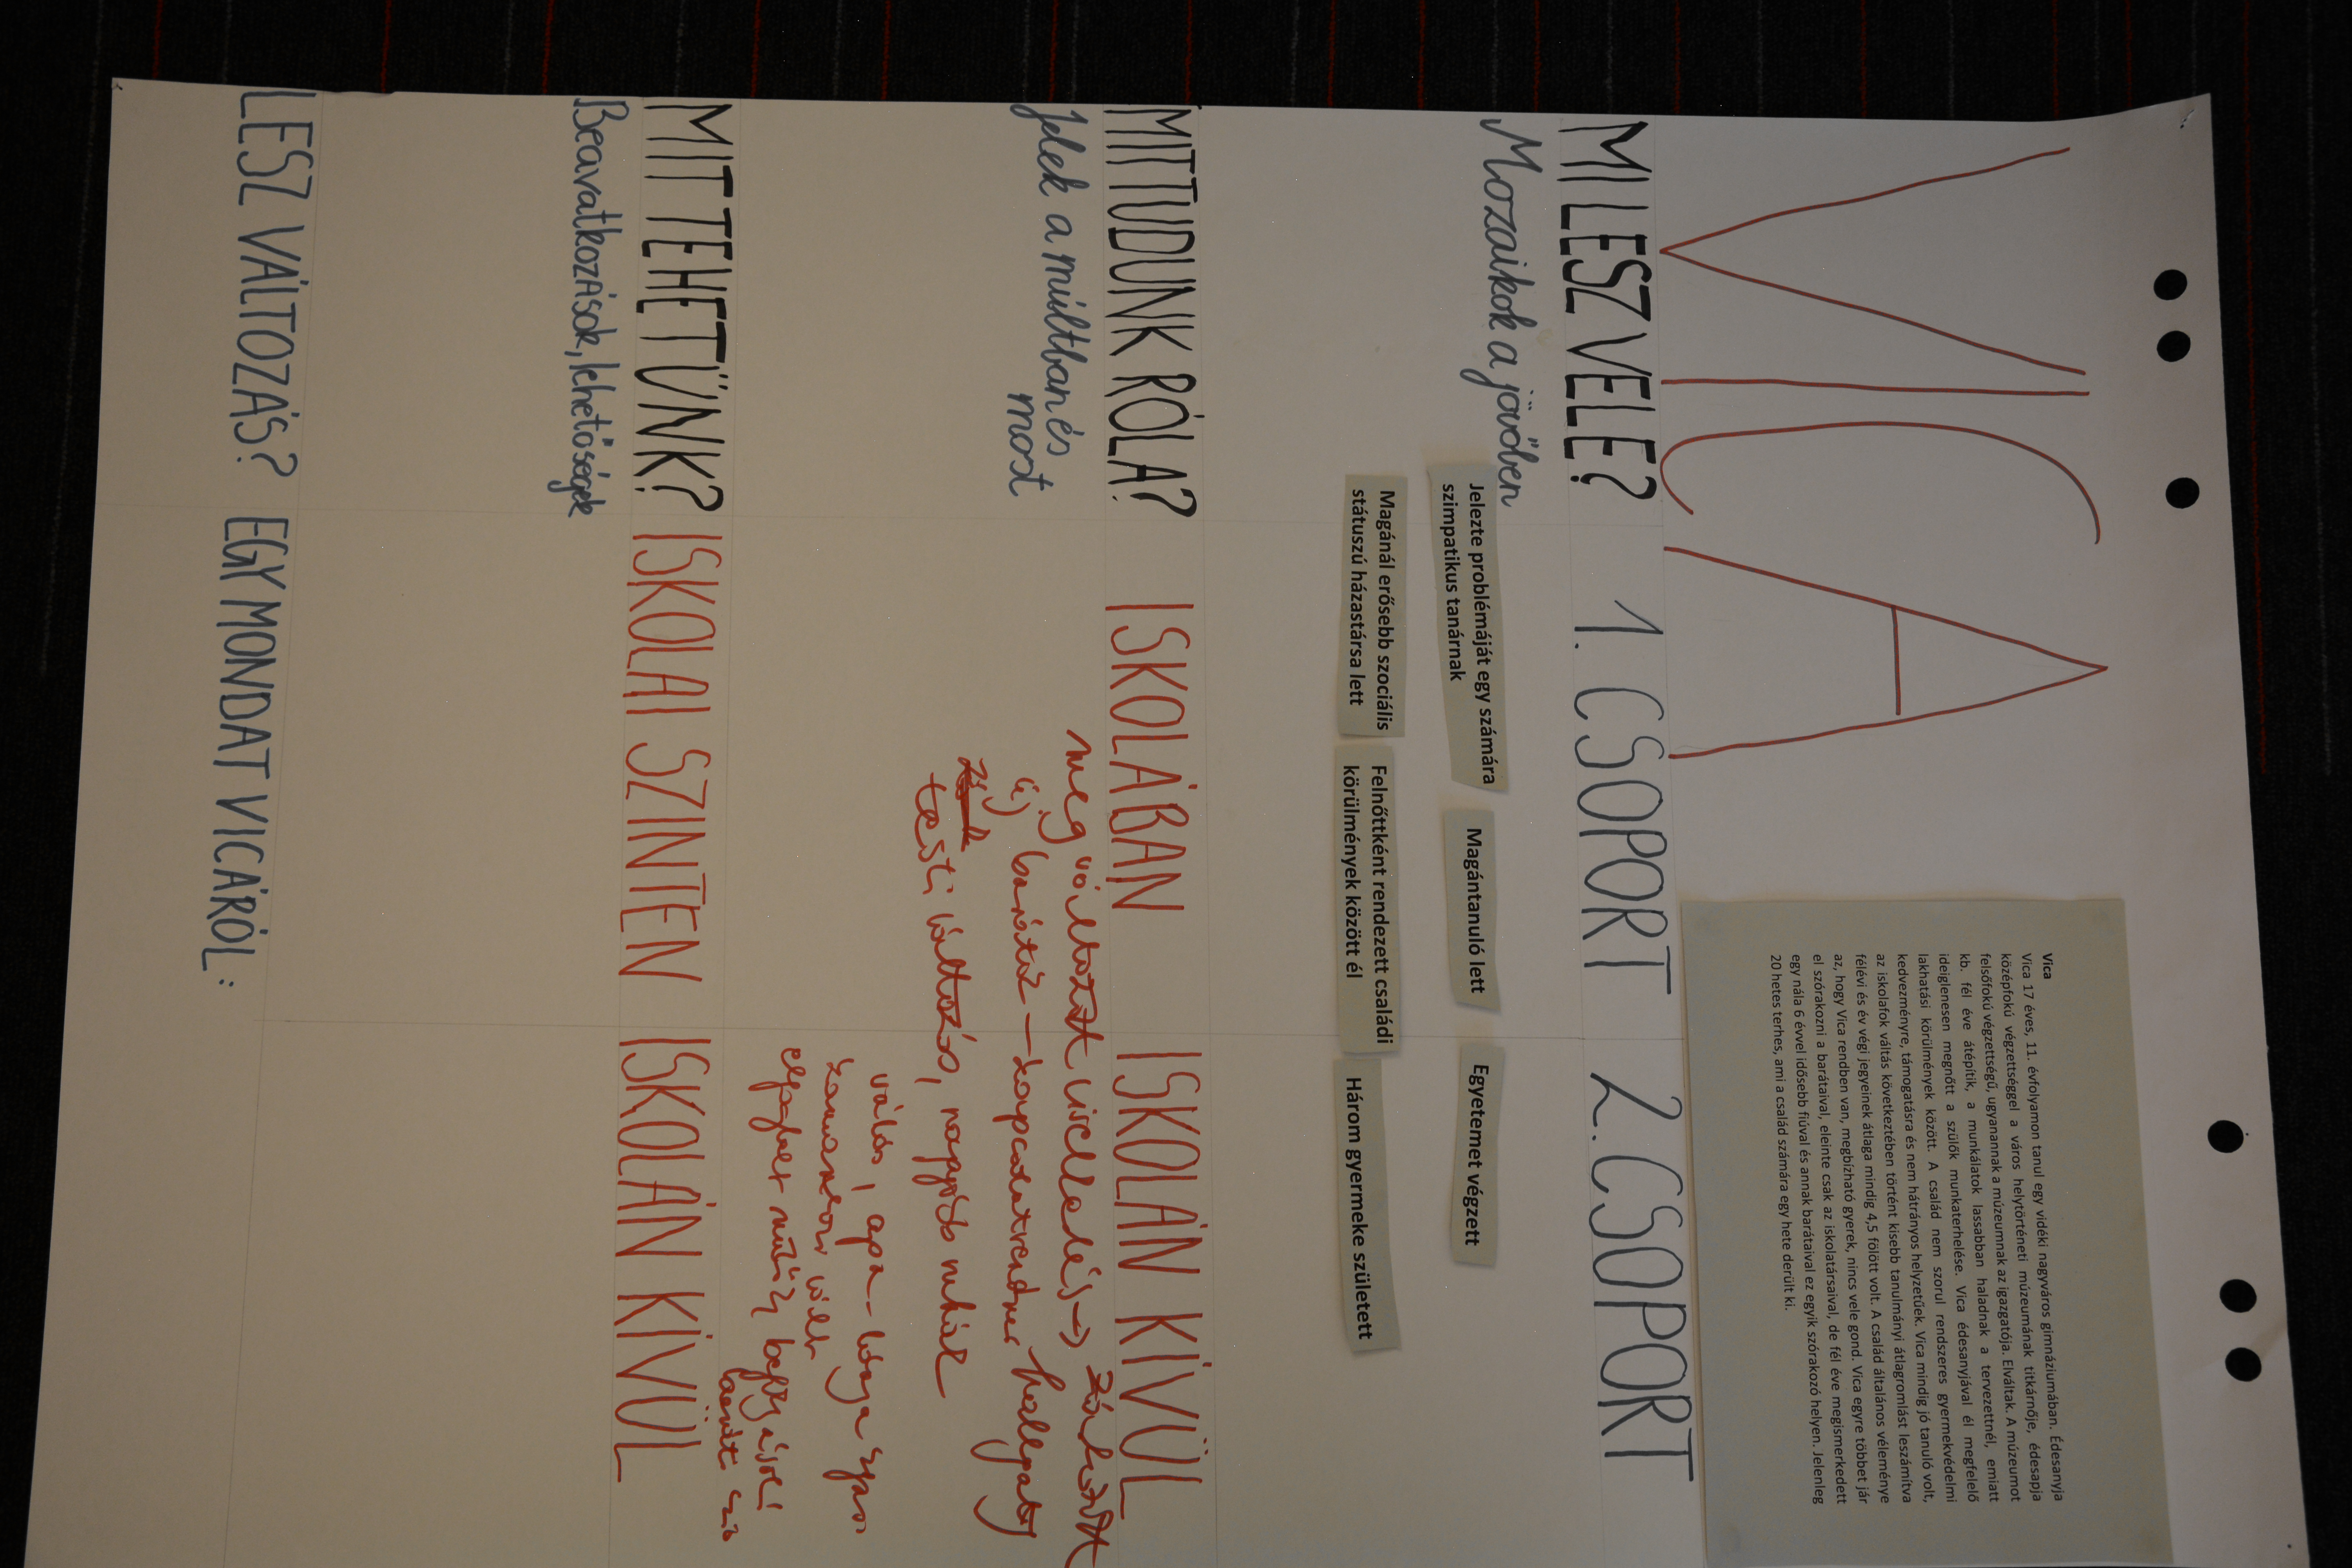 VICA
Vica
Vica 17 éves, 11. évfolyamon tanul egy vidéki nagyváros gimnáziumában. Édesanyja
középfokú végzettséggel a város helytörténeti múzeumának titkárnője, édesapja
felsőfokú végzettségű, ugyanannak a múzeumnak az igazgatója. Elváltak. A múzeumot
kb. fél éve átépítik, a munkálatok lassabban haladnak a tervezettnél, emiatt
ideiglenesen megnőtt a szülők munkaterhelése. Vica édesanyjával él megfelelő
lakhatási körülmények között. A család nem szorul rendszeres gyermekvédelmi
kedvezményre, támogatásra és nem hátrányos helyzetűek. Vica mindig jó tanuló volt,
az iskolafok váltás következtében történt kisebb tanulmányi átlagromlást leszámítva
félévi és év végi jegyeinek átlaga mindig 4,5 fölött volt. A család általános véleménye
az, hogy Vica rendben van, megbízható gyerek, nincs vele gond. Vica egyre többet jár
el szórakozni a barátaival, eleinte csak az iskolatársaival, de fél éve megismerkedett
egy nála 6 évvel idősebb fiúval és annak barátaival ez egyik szórakozó helyen. Jelenleg
20 hetes terhes, ami a család számára egy hete derült ki.
MI LESZ VELE? 1. CSOPORT 2. CSOPORT
Mozaikok a jövőben
Jelezte problémáját egy számára
szimpatikus tanárnak
Magántanuló lett
Egyetemet végzett
Magánál erősebb szociális
státuszú házastársa lett
Felnőttként rendezett családi
körülmények között él
Három gyermeke született
MIT TUDUNK RÓLA? ISKOLÁBAN ISKOLÁN KÍVÜL
Jelek a múltban és
most
megváltozott viselkedés →
új barátok –
testi változás, nagyobb ruhák
válás, apa-lánya
MIT TEHETÜNK? ISKOLAI SZINTEN ISKOLÁN KÍVÜL
Beavatkozások, lehetőségek
LESZ VÁLTOZÁS? EGY MONDAT VICÁRÓL: